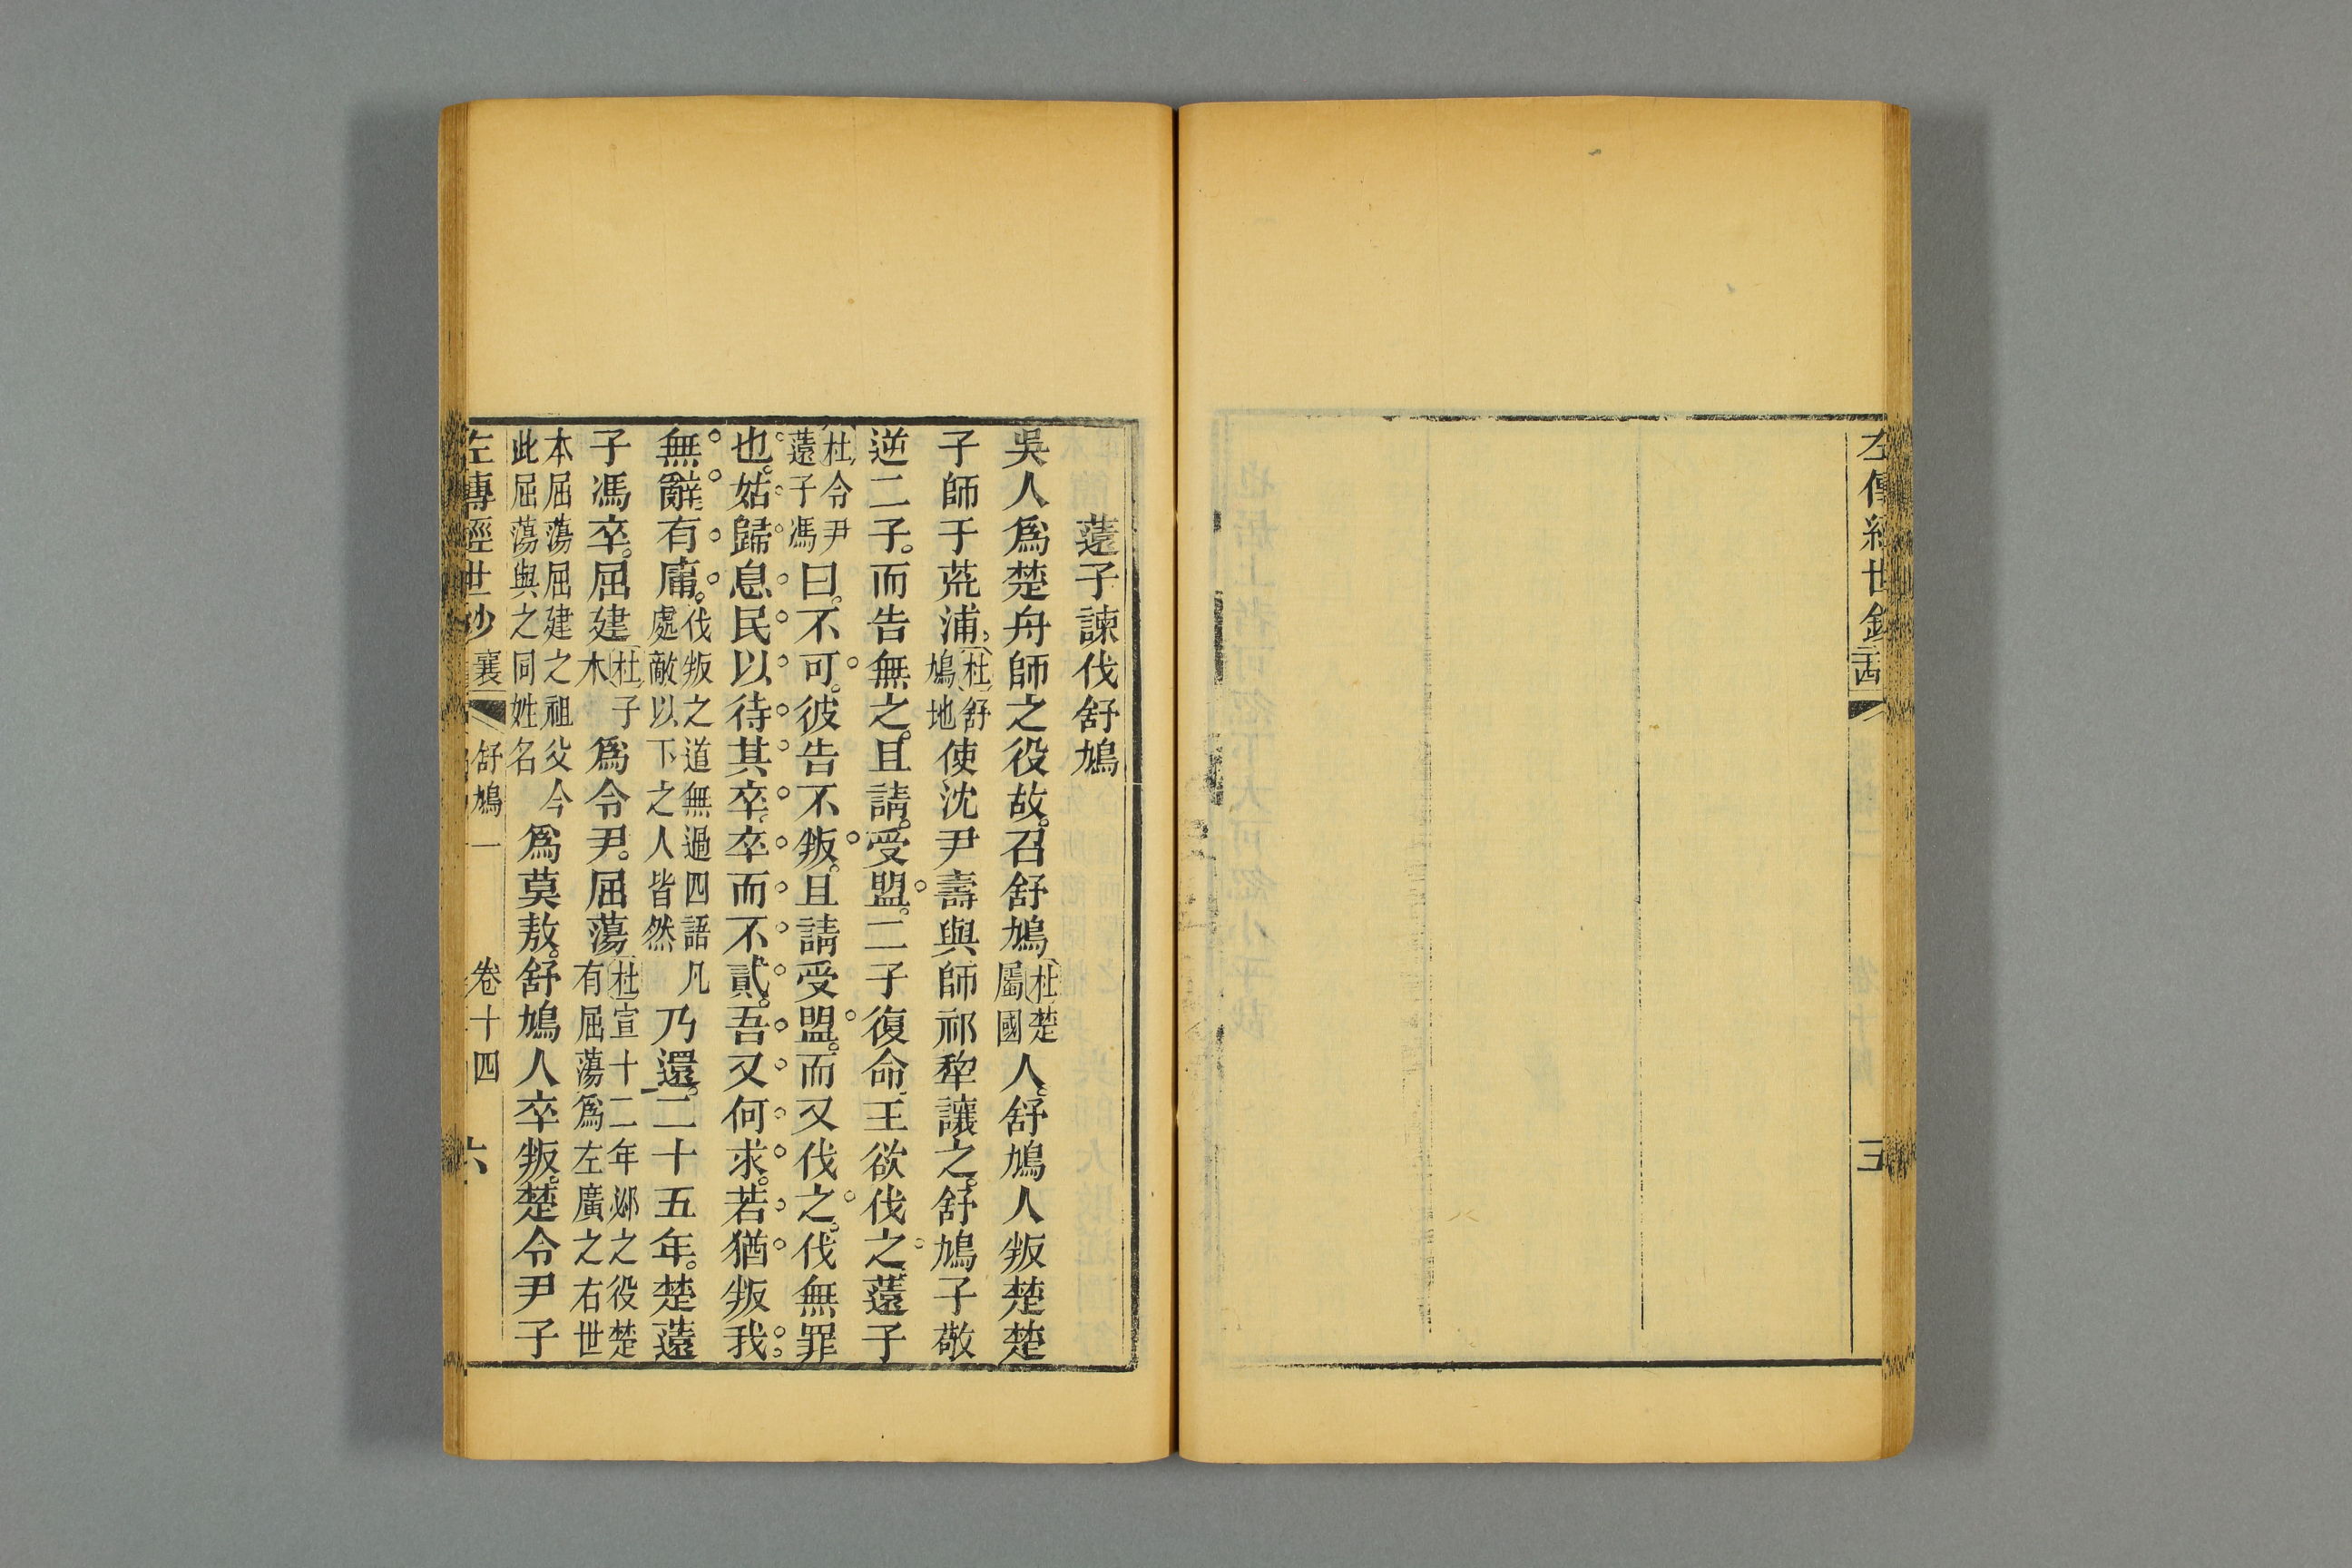 左傳經世鈔
三
薳子諫伐舒鳩
吳人爲楚舟師之役故。召舒鳩杜楚屬國人。舒鳩人叛楚楚
子師于荒浦。杜舒鳩地使沈尹壽與師祁犂讓之。舒鳩子敬
逆二子。而告無之。且請受盟。二子復命。王欲伐之。薳子
杜令尹薳子馮曰。不可。彼告不叛。且請受盟。而又伐之。伐無罪
也。姑歸息民以待其卒。卒而不貳。吾又何求。若猶叛我。
無辭有庸。伐叛之道無過四語凡處敵以下之人皆然乃還。二十五年。楚薳
子馮卒。屈建杜子木爲令尹。屈蕩杜宣十二年邲之役楚有屈蕩爲左廣之右世
本屈蕩屈建之祖父今此屈蕩與之同姓名爲莫敖。舒鳩人卒叛。楚令尹子
左傳經世鈔 襄 舒鳩一 卷十四 六